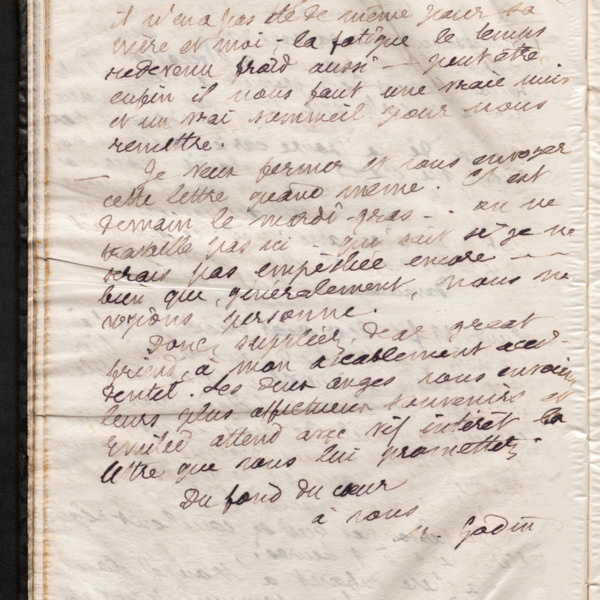 il n'en a pas été de même pour sa
mère et moi - la fatigue le temps
redevenu froid aussi - peut être,
enfin il nous faut une vraie nuit
et un vrai sommeil pour nous
remettre.
- Je veux fermer et vous envoyer
cette lettre quand même. C'est
demain le mardi-gras - on ne
travaille pas ici - qui sait si je ne
serais pas empêchée encore -
bien que, généralement, nous ne
voyons personne.
Donc, suppléez, dear great
friend, à mon accablement acci-
dentel. Les deux anges vous envoient
leurs plus affectueux souvenirs et
Emilie attend avec vif intérêt la
lettre que vous lui promettez.
Du fond du cœur
à vous
Godin